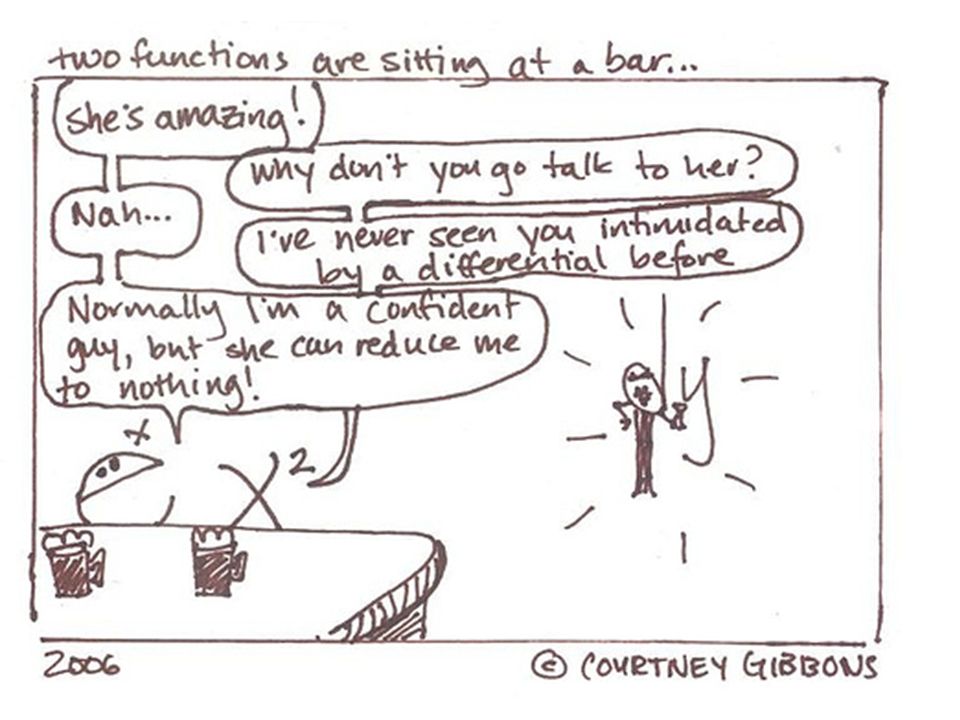 two functions are sitting at a bar...
She's amazing!
Why don't you go talk to her?
Nah...
I've never seen you intimidated
by a differential before
Normally I'm a confident
guy, but she can reduce me
to nothing!
x
x 2
dy
2006
© COURTNEY GIBBONS